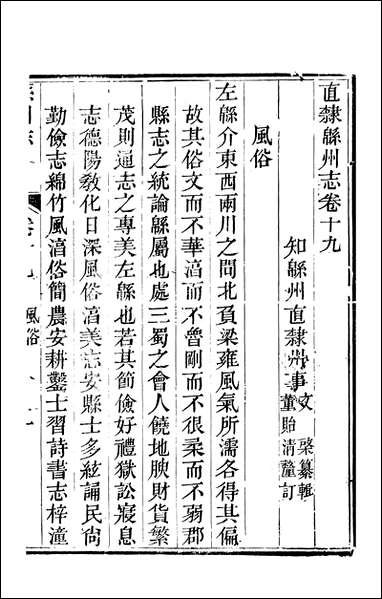 直隸緜州志卷十九
知緜州直隸州事文棨纂輯
董貽清釐訂
風俗
左緜介東西兩川之間北負梁雍風氣所濡各得其偏
故其俗文而不華湻而不魯剛而不很柔而不弱郡
縣志之統論緜屬也處三蜀之會人饒地腴財貨繁
茂則通志之專美左緜也若其節儉好禮獄訟寢息
志德陽敎化日深風俗湻美志安縣士多絃誦民尙
勤儉志綿竹風湻俗簡農安耕鑿士習詩書志梓潼
風俗